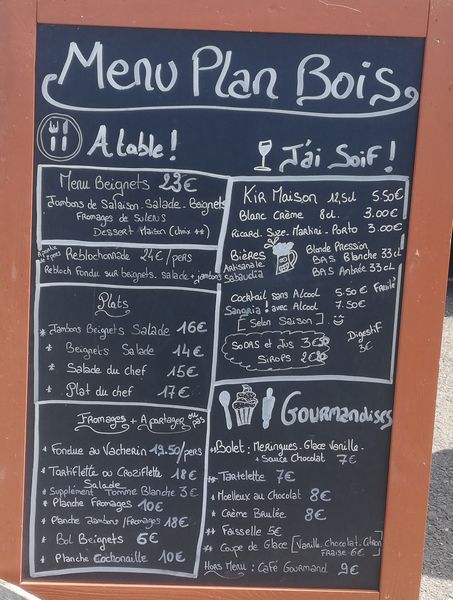 Menu Plan Bois
A table !
Menu Beignets 23€
Jambons de Salaison. Salade. Beignets
Fromages de Sulens
Dessert Maison (choix **)
A partir de 2 pers
Reblochonnade 24€/pers
Rebloch Fondu sur beignets. salade + jambons
Plats
* Jambons Beignets Salade 16€
* Beignets Salade 14€
* Salade du chef 15€
* Plat du chef 17€
Fromages + A partager ou pas
* Fondue au Vacherin 19.50/pers
* Tartiflette ou Croziflette 18€
Salade
* Supplément Tomme Blanche 3€
* Planche Fromages 10€
* Planche Jambons/Fromages 18€
* Bol Beignets 6€
* Planche Cochonaille 10€
J'ai Soif !
Kir Maison 12,5cl 5.50€
Blanc Crème 8cl. 3.00€
Ricard. Suze. Martini. Porto 3.00€
Bières
Artisanale
Sabaudia
Blonde Pression
BAS Blanche 33cl
BAS Ambrée 33cl
Cocktail sans Alcool 5.50€
Sangria ! avec Alcool 7.50€
[Selon Saison]
Sodas et Jus 3€
Sirops 2€
Digestif
3€
Gourmandises
**Bolet : Meringues. Glace Vanille.
+ Sauce Chocolat 7€
** Tartelette 7€
* Moelleux au Chocolat 8€
* Crème Brulée 8€
** Faisselle 5€
** Coupe de Glace [Vanille. Chocolat. Citron
Fraise 6€
Hors Menu : Café Gourmand 9€